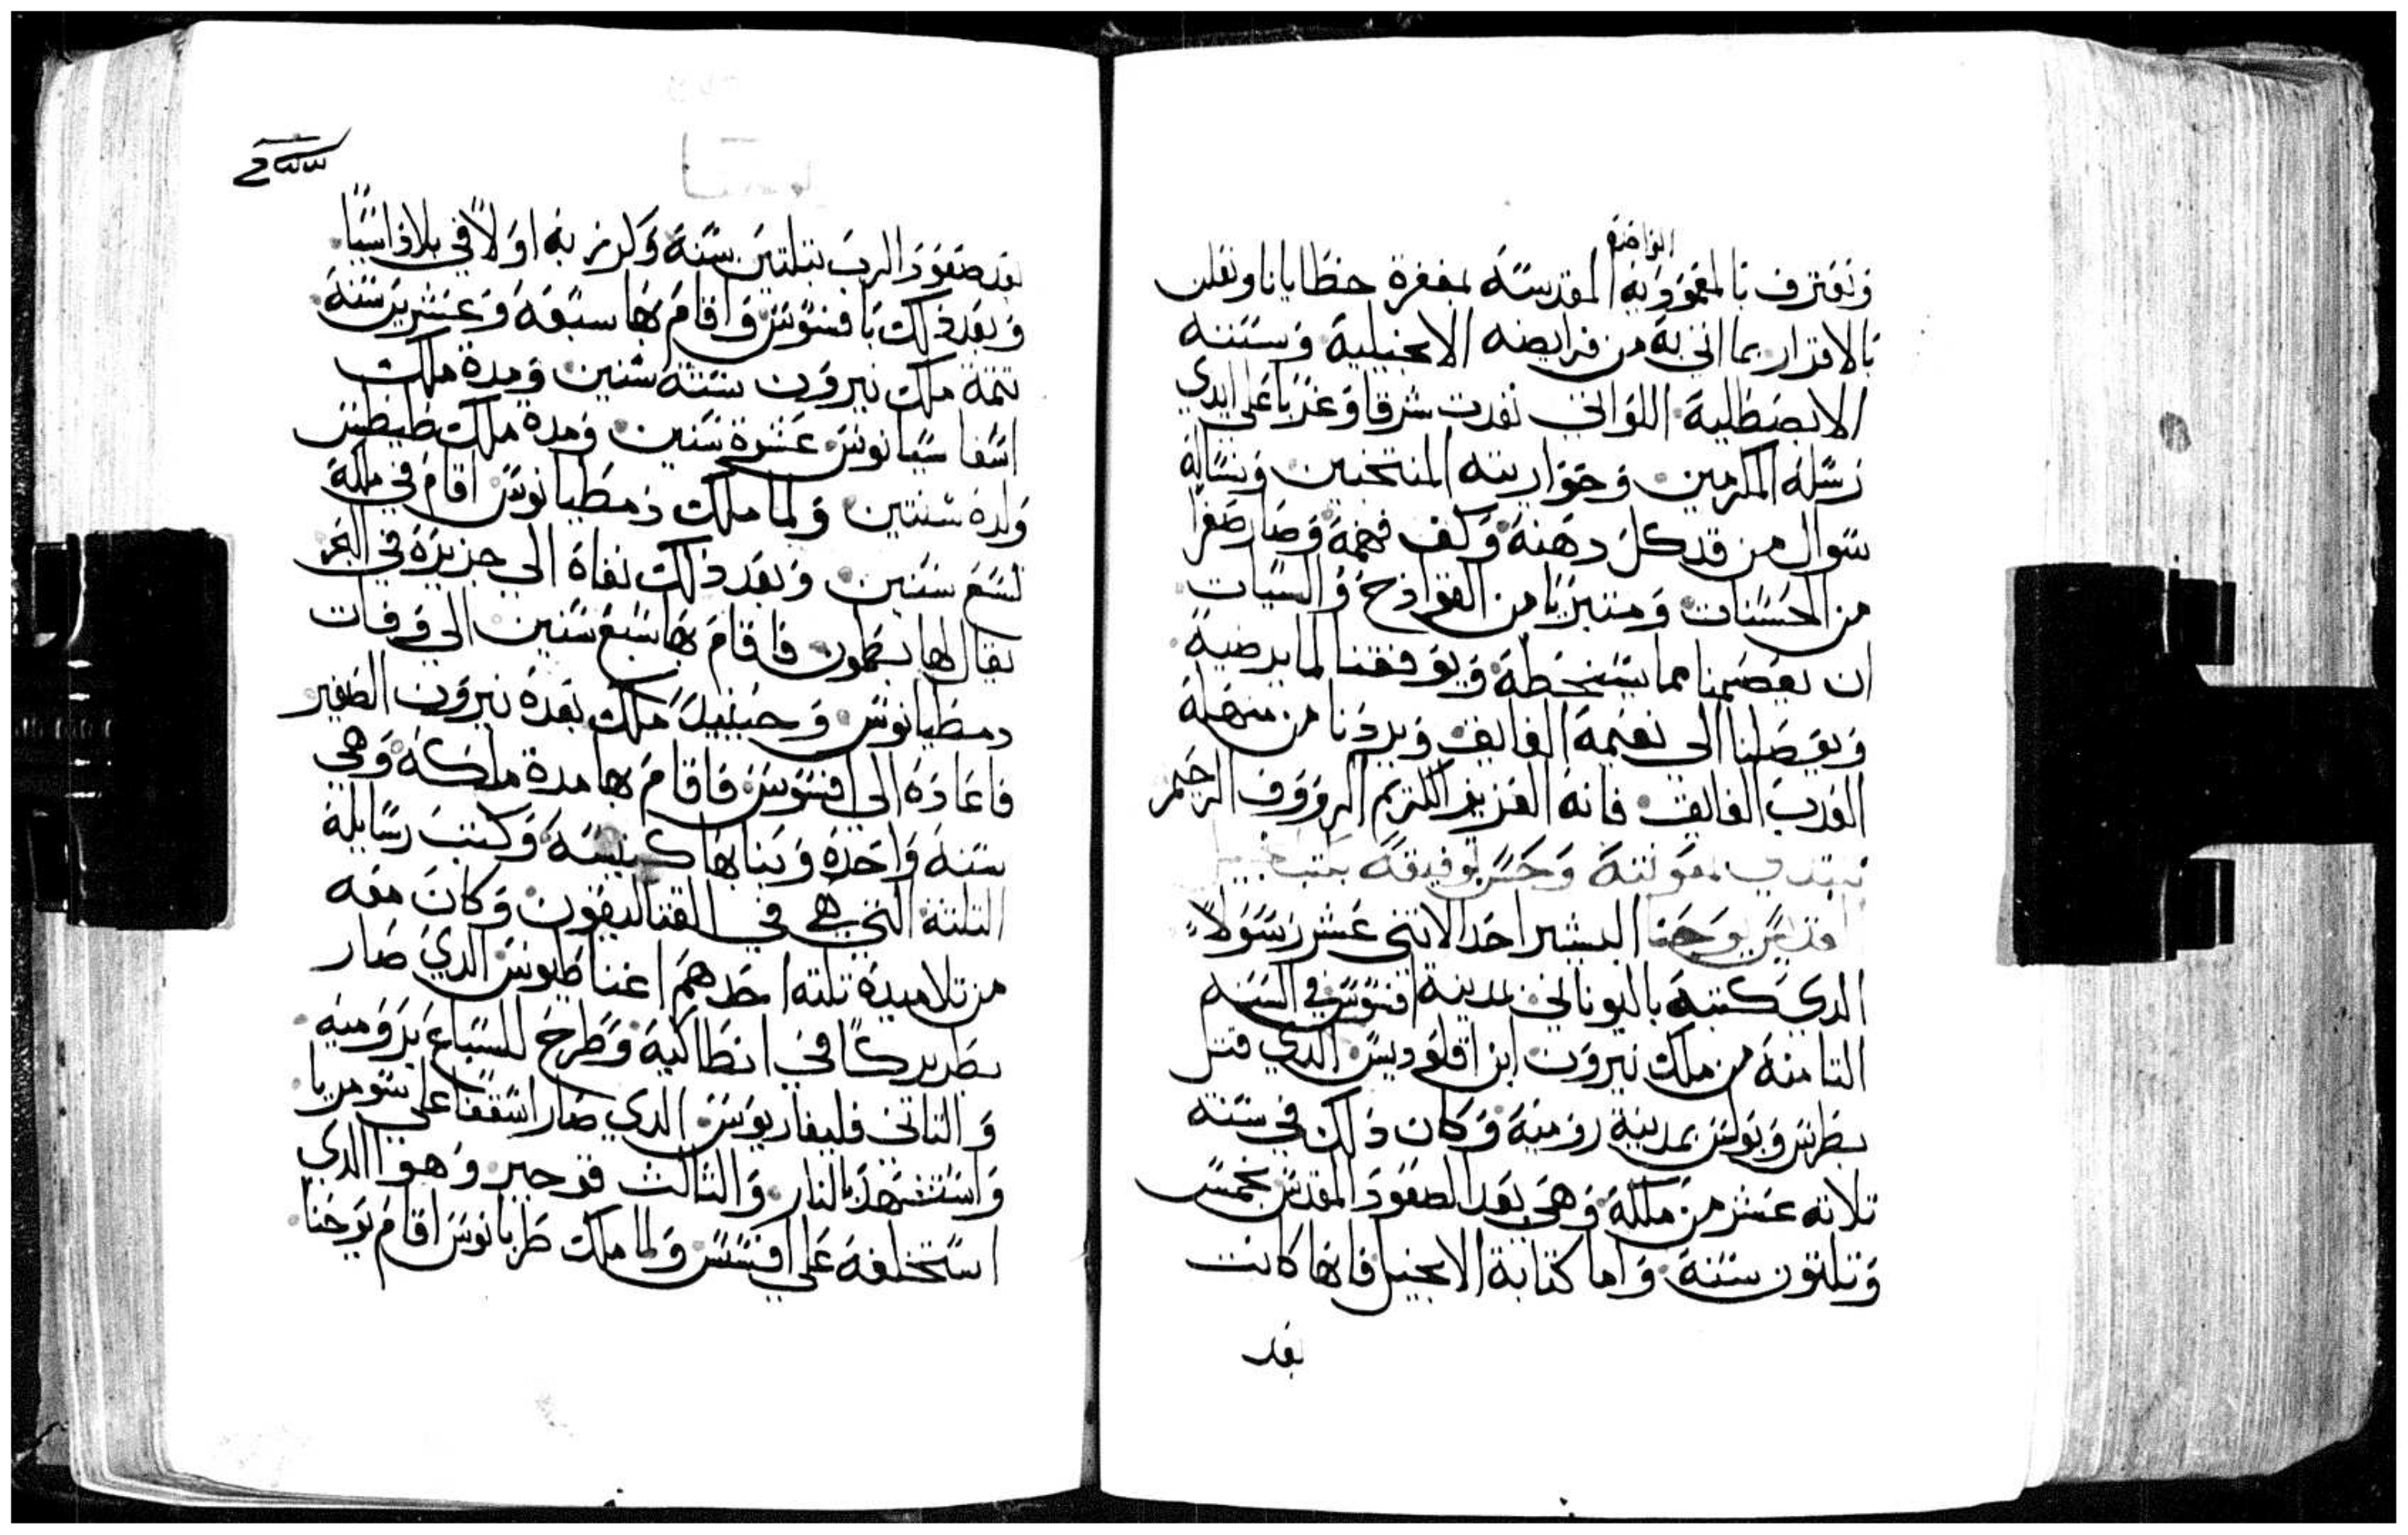 الواضعه
ونعترف بالمعموديه المقدسه لمغفرة خطايانا ونعلن
بالاقرار بما اتي به من فرايضه الانجيلية وسننه
الابصطلية اللواتي نفدت شرقا وغربا علي ايدي
رسله المكرمين وحواريته المنتخبين ونساله
سوال من قد كل دهنه وكف فهمه وصار صفرا
من الحسنات ومتبريا من الفوادح والسيات
ان يعصمنا مما يسخطه ويوفقنا لما يرضية
ويوصلنا الي نعيمه الفايق ويردنا من منهله
العذب الفايق فانه العزيز الكريم الرووف الرحيم
نبتدي بمعونته وحسن توفيقه بكتب
القديس يوحنا البشير احد الاتني عشر رسولا
الدي كتبه باليوناني بمدينة افسوس في السنه
التامنة من ملك نيرون ابن اقلوديس الدي قتل
بطرس وبولس بمدينة رومية وكان ذلك في سنة
تلاته عشر من ملكه وهي بعد الصعود المقدس بخمس
وتلتون سنة واما كتابة الانجيل فانها كانت
بعد
بعد صعود الرب بتلتين سنة وكرز به اولا في بلاد اسيا
وبعد ذلك بافسوس واقام بها سبعة وعشرين سنة
تتمة ملك نيرون ستة سنين ومدة ملك
اسفاسيانوس عشرة سنين ومدة ملك طيطس
ولده سنتين ولما ملك دمطيانوس اقام في ملكه
تسع سنين وبعد ذلك نفاه الي جزيرة في البحر
يقال لها بطمون فاقام بها سبع سنين الي وفات
دمطيانوس وحينيد ملك بعده نيرون الصغير
فاعاده الي افسوس فاقام بها مدة ملكه وهي
سنة واحدة وبنا بها كنيسة وكتب رسايله
التلتة التي هي في القتاليقون وكان معه
من تلاميده تلته احدهم اغناطيوس الدي صار
بطريركا في انطاكية وطرح للسباع برومية
والتاني فليفاريوس الدي صار اسقفا علي سومريا
واستشهد بالنار والثالث قوجير وهوا الدي
استخلفه علي افسس ولما ملك طريانوس اقام يوحنا